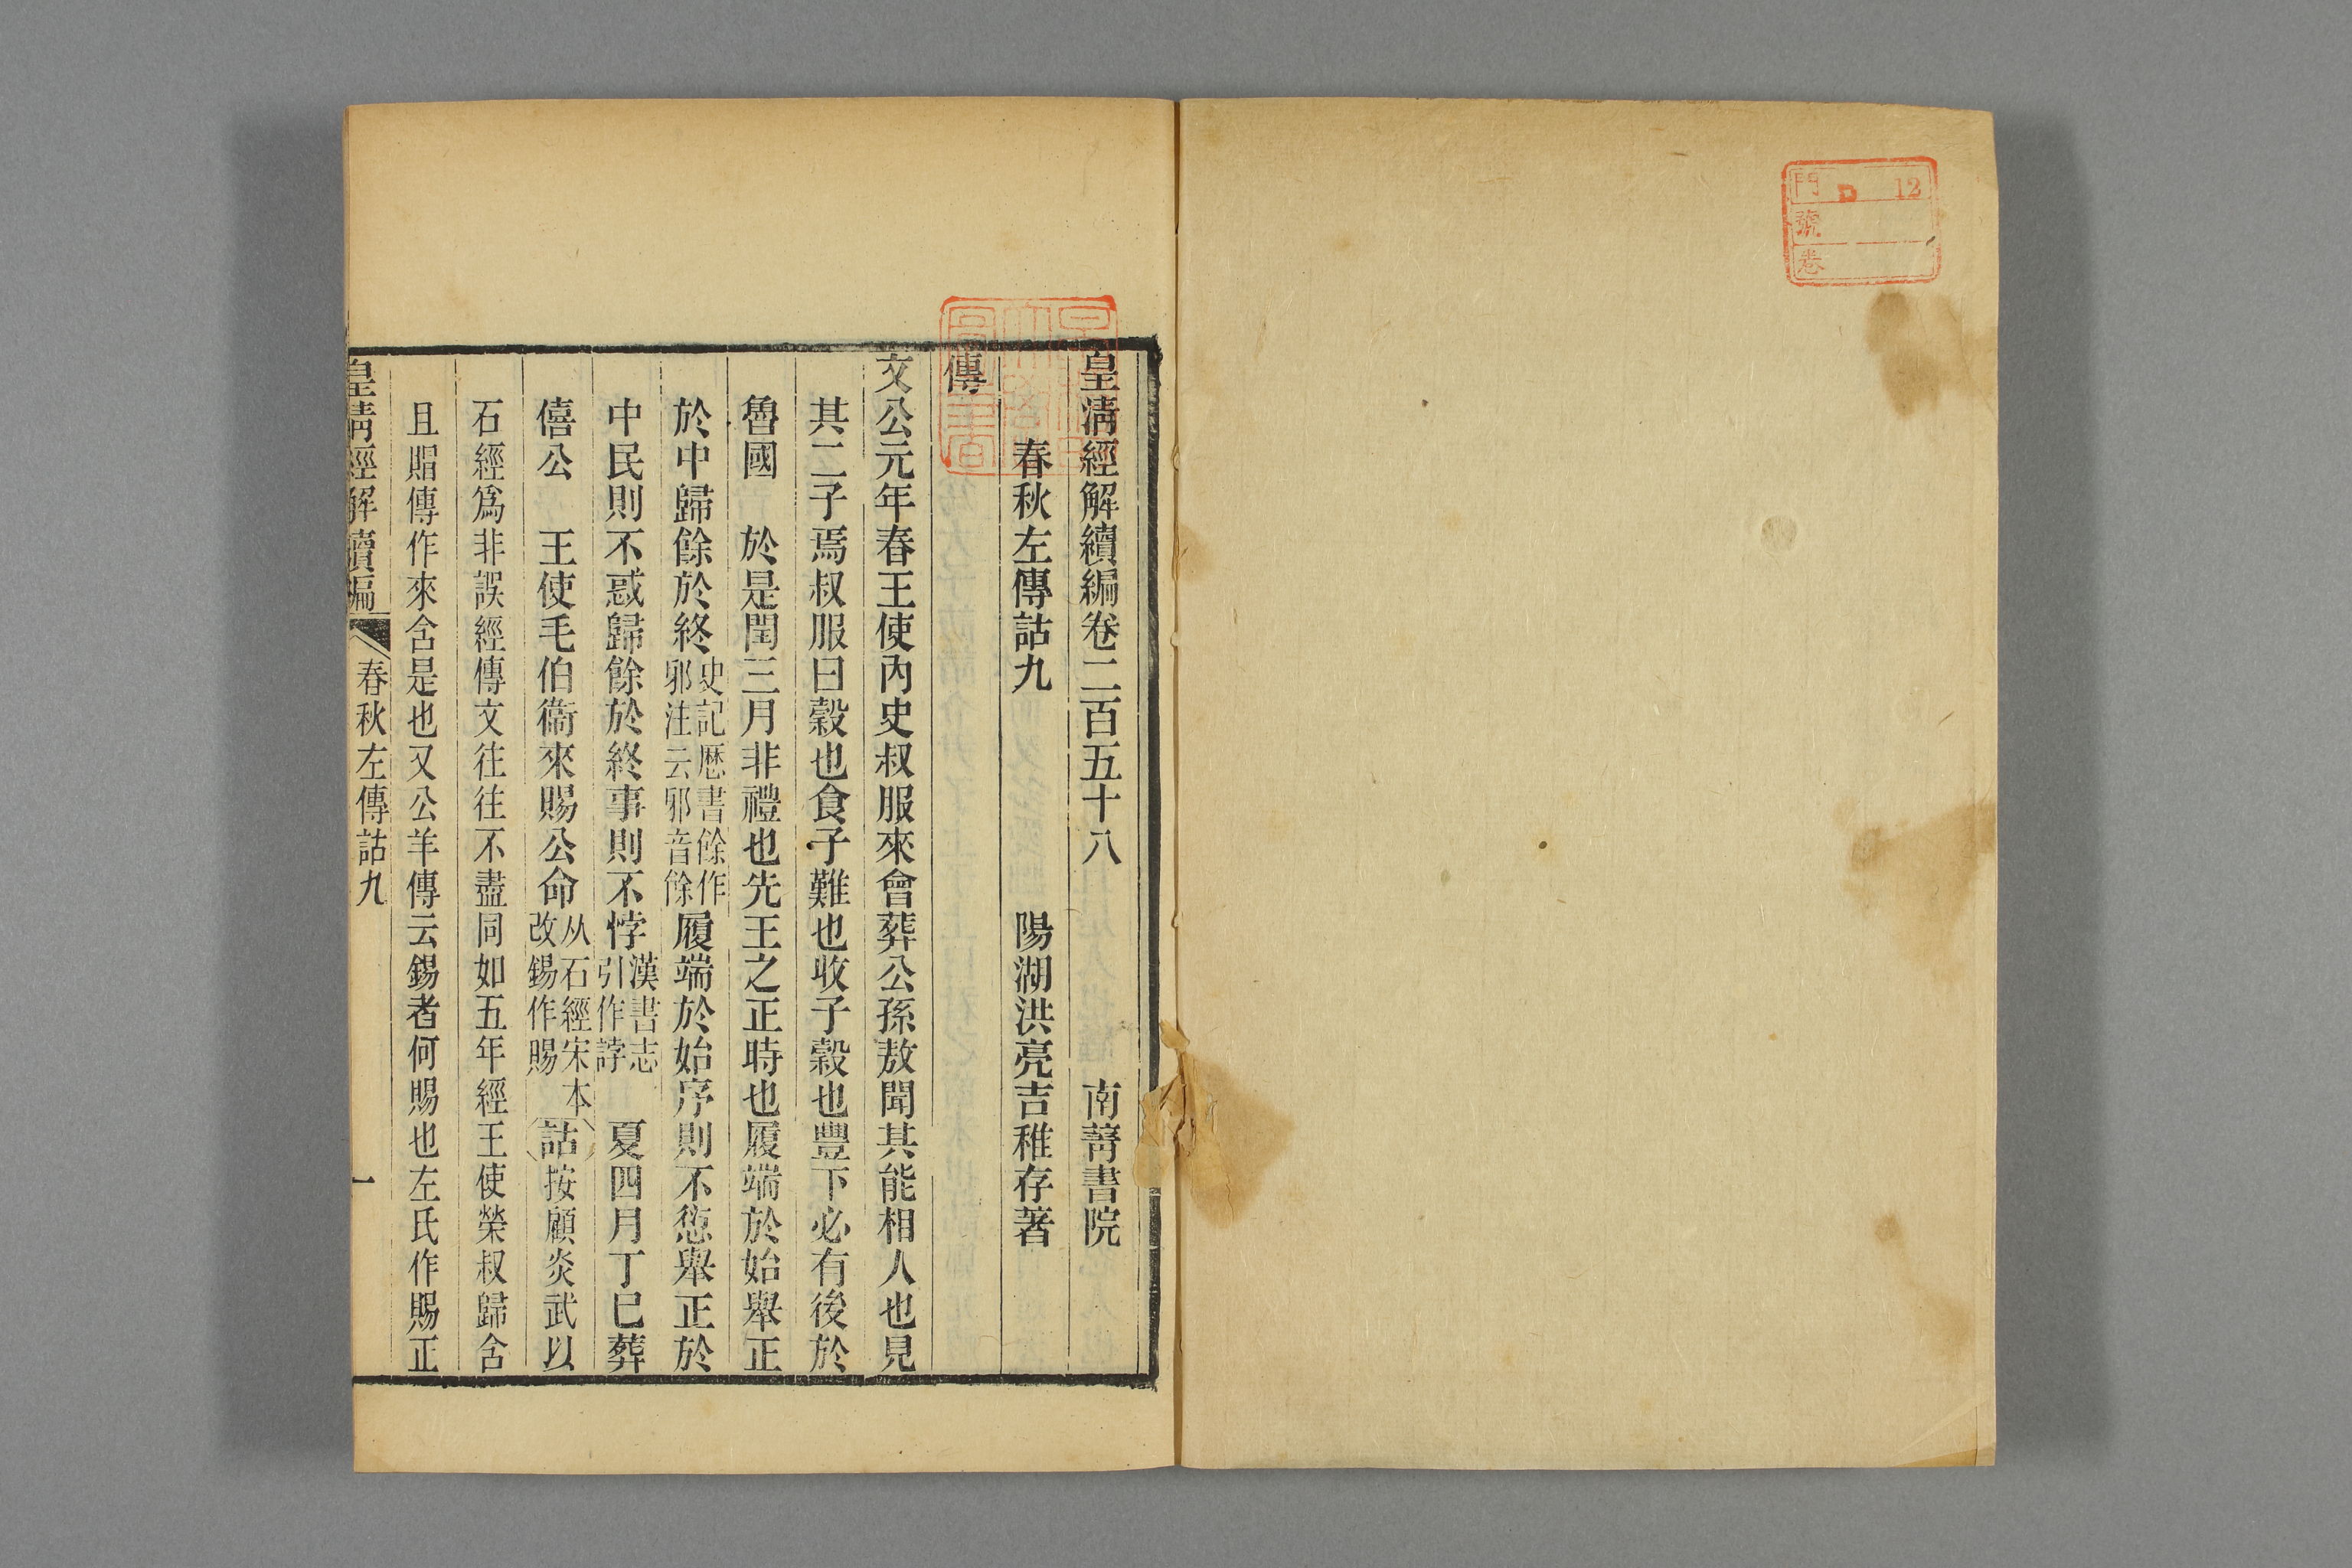 門 D 12
號
卷
皇清經解續編卷二百五十八 南菁書院
春秋左傳詁九 陽湖洪亮吉稚存著
傳
文公元年春王使內史叔服來會葬公孫敖聞其能相人也見
其二子焉叔服曰穀也食子難也收子穀也豐下必有後於
魯國 於是閏三月非禮也先王之正時也履端於始舉正
於中歸餘於終史記厯書餘作邪注云邪音餘履端於始序則不愆舉正於
中民則不惑歸餘於終事則不悖漢書志引作誖 夏四月丁巳葬
僖公 王使毛伯衞來賜公命从石經宋本改錫作賜詁按顧炎武以
石經爲非誤經傳文往往不盡同如五年經王使榮叔歸含
且賵傳作來含是也又公羊傳云錫者何賜也左氏作賜正
皇清經解續編 春秋左傳詁九 一